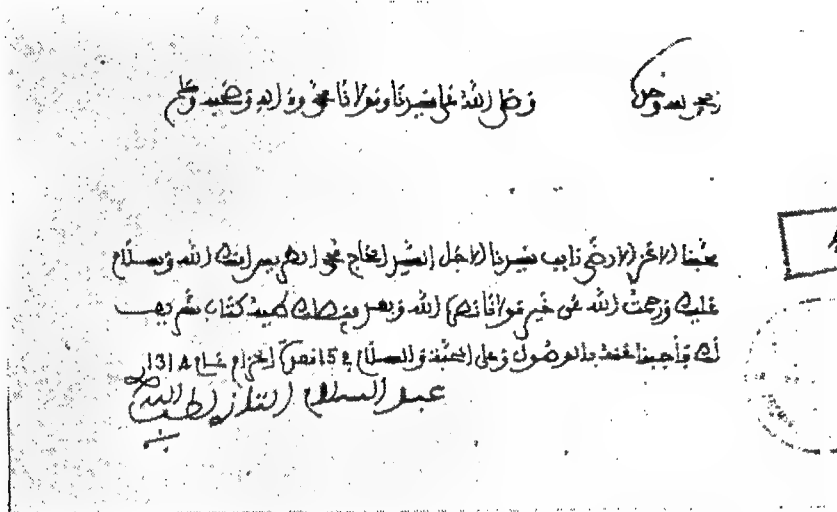 الحمد لله وحده وصلى الله على سيدنا ومولانا محمد وءاله وصحبه وسلم
محبنا الاعز الارضى نايب سيدنا الاجل السيد الحاج محمد امنك الله وسلام
عليك ورحمت الله عن خير مولانا نصره الله وبعد فيصلك طيه كتاب شريف
لك فأجبنا عنه بالوصول وعلى المحبة والسلام في 15 محرم الحرام عام 1314
عبد السلام التازي لطف الله به